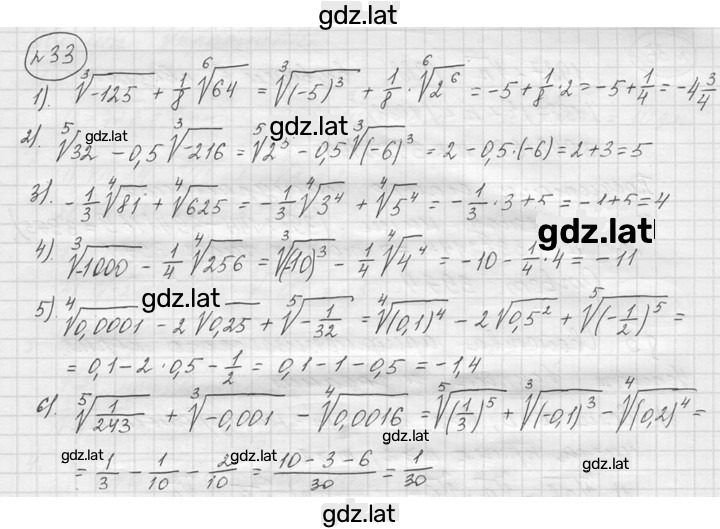 gdz.lat
№33
1). ∛-125 + 1/8 ⁶√64 = ∛(-5)³ + 1/8 · ⁶√2⁶ = -5 + 1/8 · 2 = -5 + 1/4 = -4 3/4
gdz.lat
gdz.lat
2). ⁵√32 - 0,5 ∛-216 = ⁵√2⁵ - 0,5 ∛(-6)³ = 2 - 0,5·(-6) = 2 + 3 = 5
3). -1/3 ⁴√81 + ⁴√625 = -1/3 ⁴√3⁴ + ⁴√5⁴ = -1/3 · 3 + 5 = -1 + 5 = 4
gdz.lat
4). ∛-1000 - 1/4 ⁴√256 = ∛(-10)³ - 1/4 ⁴√4⁴ = -10 - 1/4 · 4 = -11
gdz.lat
5). ⁴√0,0001 - 2 √0,25 + ⁵√-1/32 = ⁴√(0,1)⁴ - 2 √0,5² + ⁵√(-1/2)⁵ =
= 0,1 - 2 · 0,5 - 1/2 = 0,1 - 1 - 0,5 = -1,4
6). ⁵√1/243 + ∛-0,001 - ⁴√0,0016 = ⁵√(1/3)⁵ + ∛(-0,1)³ - ⁴√(0,2)⁴ =
gdz.lat
gdz.lat
gdz.lat
gdz.lat
= 1/3 - 1/10 - 2/10 = (10 - 3 - 6)/30 = 1/30
gdz.lat